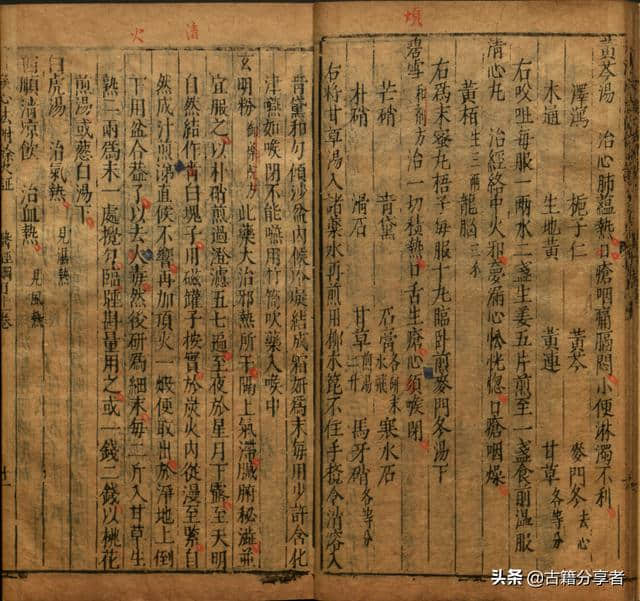 煩
黃芩湯　治心肺蘊熱口瘡咽痛膈悶小便淋濁不利
澤瀉　梔子仁　黃芩　麥門冬去心
木通　生地黃　黃連　甘草各等分
右㕮咀每服一兩水二盞生姜五片煎至一盞食前溫服
清心丸　治經絡中火邪夢漏心忪恍惚口瘡咽燥
黃栢生三兩　龍腦三
右爲末蜜丸梧子每服十九臨臥煎麥門冬湯下
碧雪和劑方　治一切積熱口舌生瘡心煩喉閉
芒硝　青黛　石膏各研末水飛　寒水石
朴硝　滑石　甘草煎湯　馬牙硝各等分
右將甘草湯入諸藥水再煎用柳木篦不住手攪令消溶入
清
火
青黛和勻傾沙盆內候冷凝結成霜研爲末每用少許含化
津嚥如喉閉不能嚥用竹筒吹藥入喉中
玄明粉御藥院方　此藥大治邪熱所干膈上氣滯臟腑秘澁並
宜服之以朴硝煎過澄濾五七遍至夜於星月下露至天明
自然結作青白塊子用磁罐子按實於炭火內從漫至緊自
然成汁煎沸直候不響再加頂火一煆便取出於淨地上倒
下用盆合盖了以去火毒然後研爲細末每二斤入甘草生
熟二兩爲末一處攪勻臨睡斟量用之或一錢二錢以桃花
煎湯或葱白湯下
白虎湯　治氣熱見濕熱
順清涼飲　治血熱見風熱
頭条 @古籍分享者